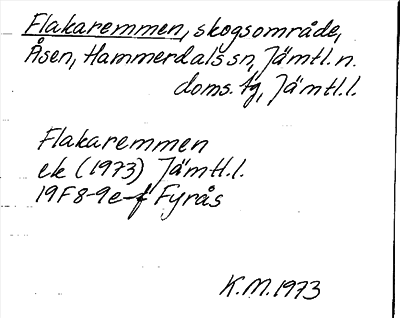 Flakaremmen, skogsområde,
Åsen, Hammerdals sn, Jämtl. n.
doms. tg, Jämtl. l.
Flakaremmen
ek (1973) Jämtl. l.
19F8-9e-f Fyrås
K.M. 1973